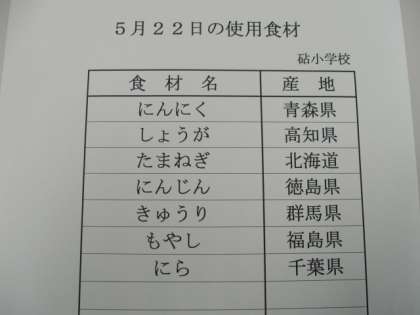 5月22日の使用食材
砧小学校
食材名 産地
にんにく 青森県
しょうが 高知県
たまねぎ 北海道
にんじん 徳島県
きゅうり 群馬県
もやし 福島県
にら 千葉県